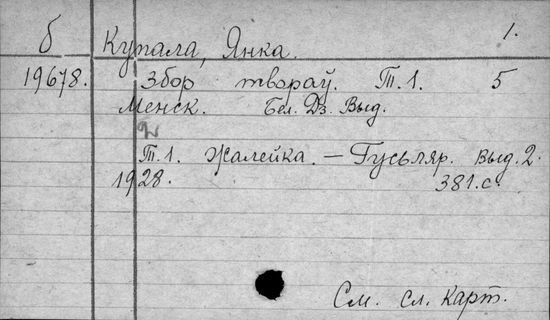 1.
б Купала, Янка.
19678. Збор твораў. Т.1. 5
Менск. Бел. Дз. Выд.
Т.1. Жалейка. — Гусьляр. Выд. 2.
1928. 381.с.
См. сл. карт.